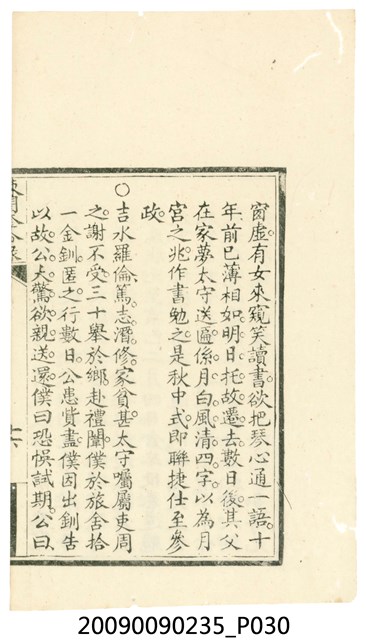 窗虛有女來窺笑讀書欲把琴心通一語十
年前已薄相如明日托故遷去數日後其父
在家夢太守送匾係月白風清四字以為月
宮之兆作書勉之是秋中式即聯捷仕至參
政
○吉水羅倫篤志潛修家貧甚太守囑屬吏周
之謝不受三十舉於鄉赴禮闈僕於旅舍拾
一金釧匿之行數日公患貲盡僕因出釧告
以故公大驚欲親送還僕曰恐悞試期公曰
20090090235_P030